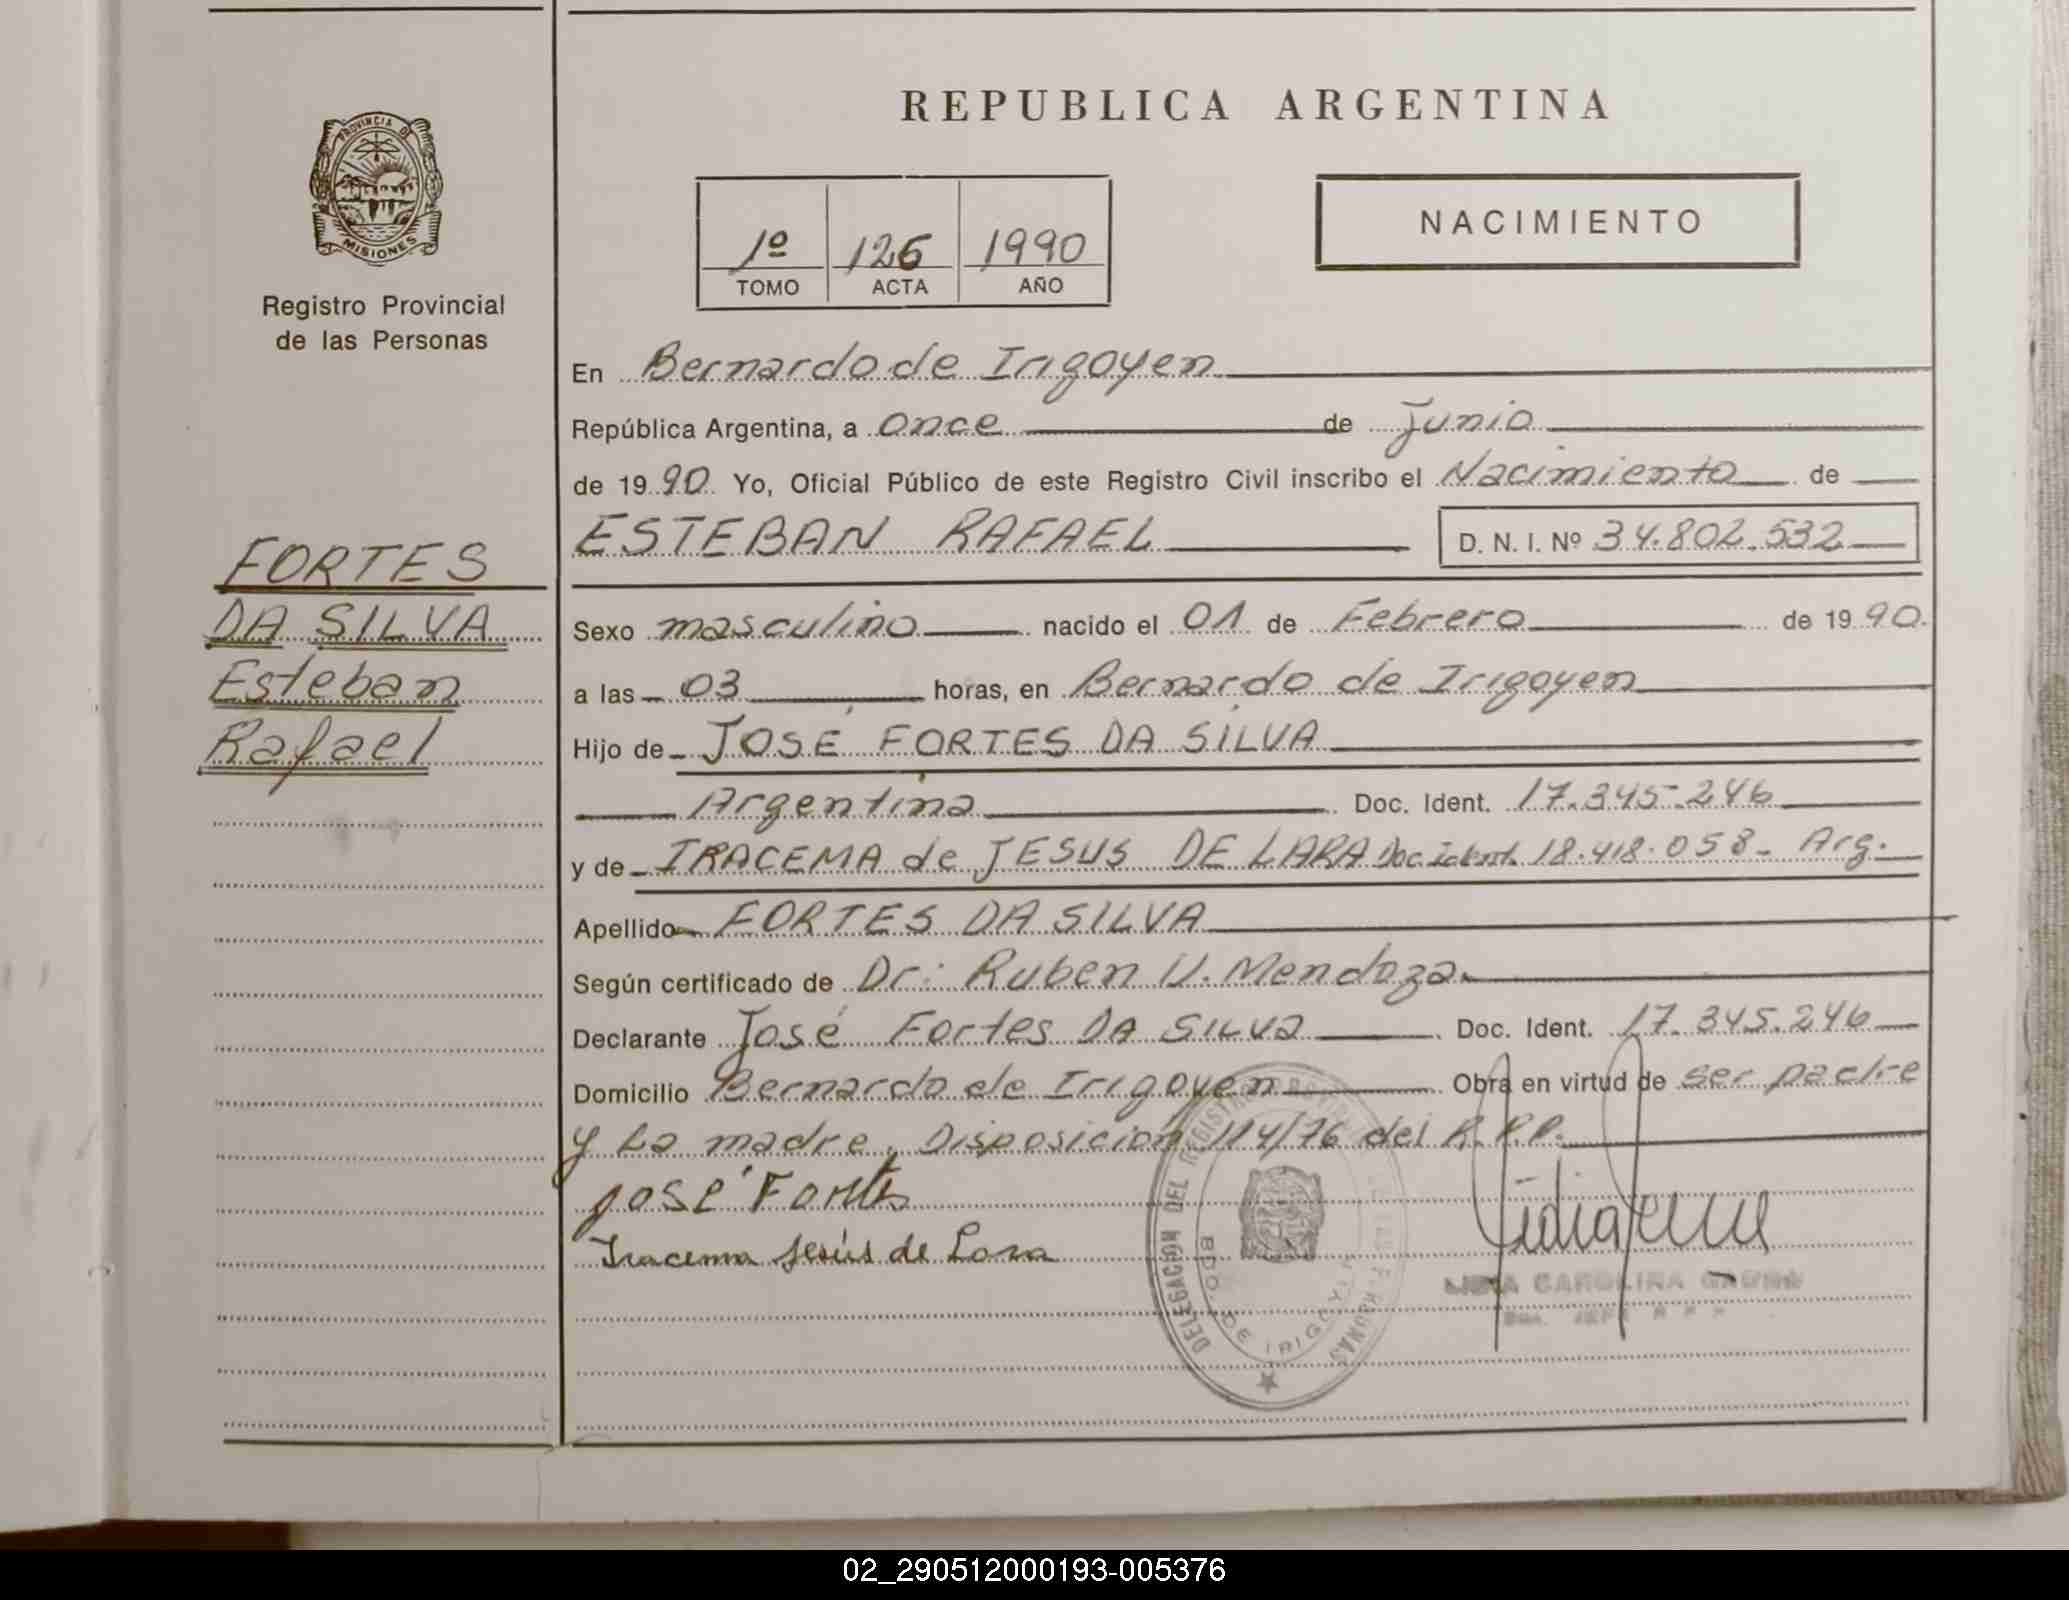 REPUBLICA ARGENTINA
PROVINCIA DE
MISIONES
Registro Provincial
de las Personas
1º 126 1990
TOMO ACTA AÑO
NACIMIENTO
En Bernardo de Irigoyen
República Argentina, a once de Junio
de 1990 Yo, Oficial Público de este Registro Civil inscribo el Nacimiento de
ESTEBAN RAFAEL D. N. I. Nº 34.802.532
FORTES
DA SILVA
Esteban
Rafael
Sexo masculino nacido el 01 de Febrero de 1990.
a las 03 horas, en Bernardo de Irigoyen
Hijo de JOSÉ FORTES DA SILVA
Argentina Doc. Ident. 17.345.246
y de IRACEMA de JESUS DE LARA Doc. Ident. 18.418.058- Arg.
Apellido FORTES DA SILVA
Según certificado de Dr: Ruben U. Mendoza
Declarante José Fortes DA SILVA Doc. Ident. 17.345.246
Domicilio Bernardo de Irigoyen Obra en virtud de ser padre
y La madre, Disposicion 114/76 del R.P.P.
José Fortes
Iracema Jesús de Lara
DELEGACION DEL REGISTRO DE LAS PERSONAS
BDO. DE IRIGOYEN
CAROLINA
02_290512000193-005376